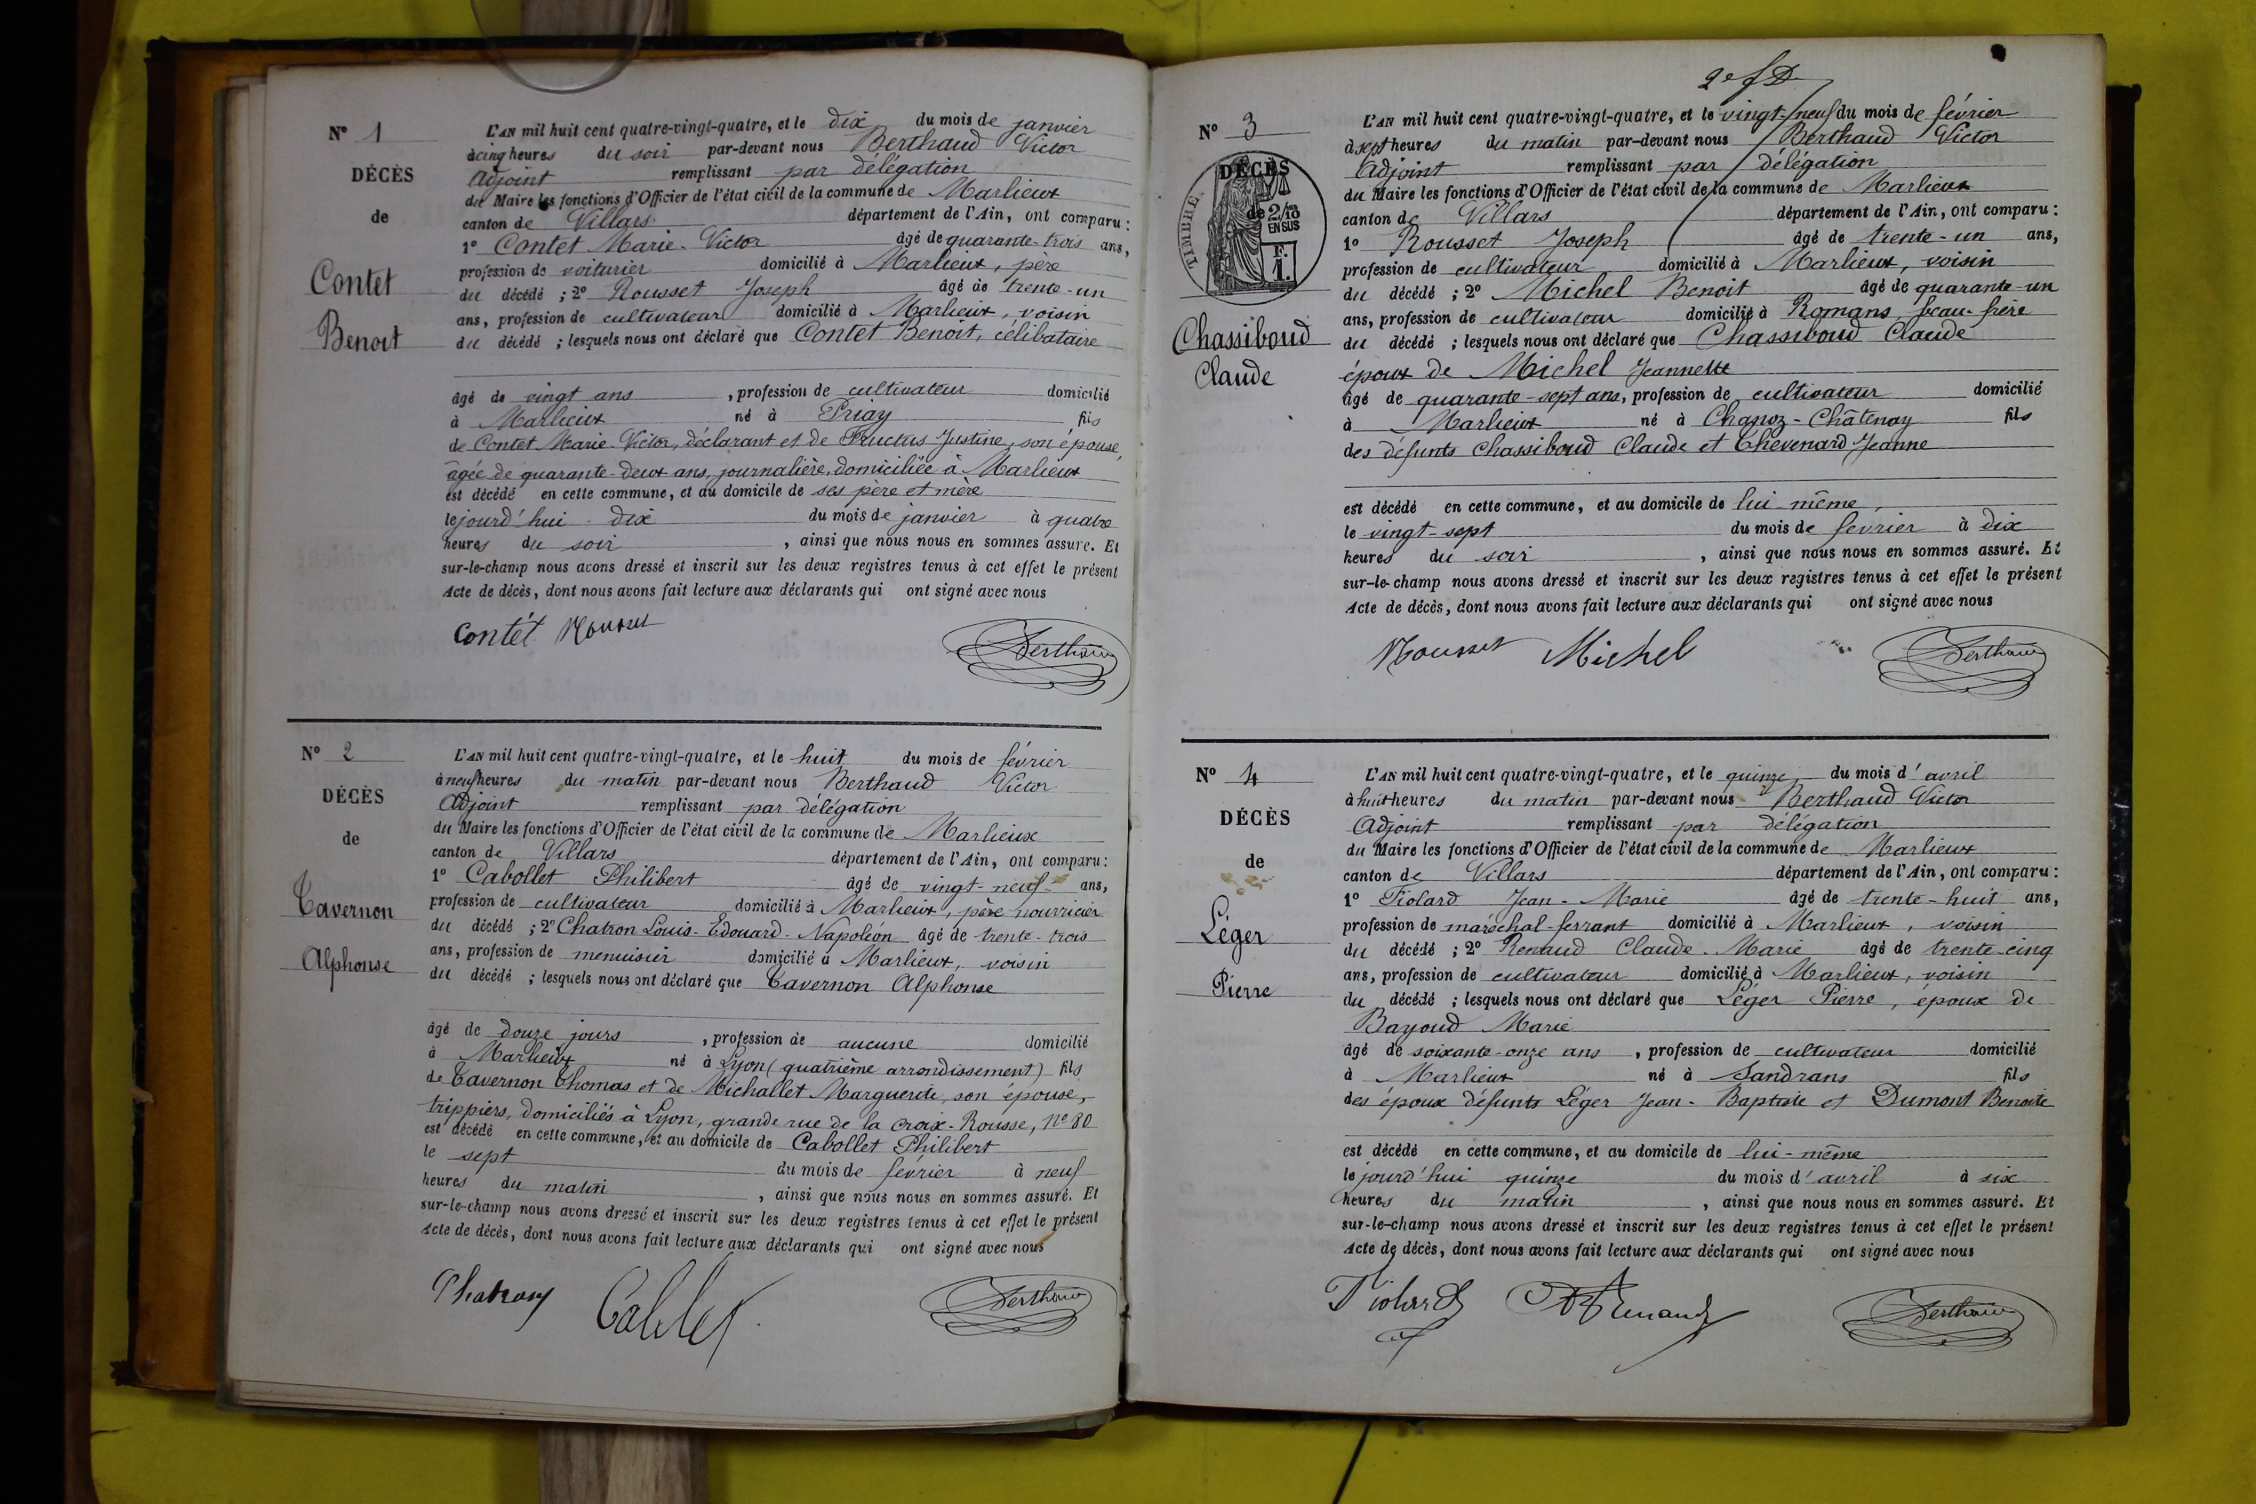 Nº 1
DÉCÈS
de
Contet
Benoit
L'AN mil huit cent quatre-vingt-quatre, et le dix du mois de janvier
à cinq heures du soir par-devant nous Berthaud Victor
Adjoint remplissant par délégation
du Maire les fonctions d'Officier de l'état civil de la commune de Marlieux
canton de Villars département de l'Ain, ont comparu :
1º Contet Marie-Victor âgé de quarante-trois ans,
profession de voiturier domicilié à Marlieux, père
du décédé ; 2º Rousset Joseph âgé de trente-un
ans, profession de cultivateur domicilié à Marlieux, voisin
du décédé ; lesquels nous ont déclaré que Contet Benoit, célibataire
âgé de vingt ans, profession de cultivateur domicilié
à Marlieux né à Priay fils
de Contet Marie-Victor, déclarant et de Fructus Justine, son épouse,
âgée de quarante-deux ans, journalière, domiciliée à Marlieux
est décédé en cette commune, et au domicile de ses père et mère
le jourd'hui dix du mois de janvier à quatre
heures du soir, ainsi que nous nous en sommes assuré. Et
sur-le-champ nous avons dressé et inscrit sur les deux registres tenus à cet effet le présent
Acte de décès, dont nous avons fait lecture aux déclarants qui ont signé avec nous
Contét Rousset Berthaud
Nº 2
DÉCÈS
de
Tavernon
Alphonse
L'AN mil huit cent quatre-vingt-quatre, et le huit du mois de février
à neuf heures du matin par-devant nous Berthaud Victor
Adjoint remplissant par délégation
du Maire les fonctions d'Officier de l'état civil de la commune de Marlieux
canton de Villars département de l'Ain, ont comparu :
1º Cabollet Philibert âgé de vingt-neuf ans,
profession de cultivateur domicilié à Marlieux, père nourricier
du décédé ; 2º Chatron Louis-Edouard-Napoléon âgé de trente-trois
ans, profession de menuisier domicilié à Marlieux, voisin
du décédé ; lesquels nous ont déclaré que Tavernon Alphonse
âgé de douze jours, profession de aucune domicilié
à Marlieux né à Lyon (quatrième arrondissement) fils
de Tavernon Thomas et de Michallet Marguerite, son épouse,
trippiers, domiciliés à Lyon, grande rue de la Croix-Rousse, Nº 80
est décédé en cette commune, et au domicile de Cabollet Philibert
le sept du mois de février à neuf
heures du matin, ainsi que nous nous en sommes assuré. Et
sur-le-champ nous avons dressé et inscrit sur les deux registres tenus à cet effet le présent
Acte de décès, dont nous avons fait lecture aux déclarants qui ont signé avec nous
Chatron Cabollet Berthaud
2e f D
Nº 3
DÉCÈS
de
TIMBRE.
2/10 EN SUS
F.
1.
Chassiboud
Claude
L'AN mil huit cent quatre-vingt-quatre, et le vingt-neuf du mois de février
à sept heures du matin par-devant nous Berthaud Victor
Adjoint remplissant par délégation
du Maire les fonctions d'Officier de l'état civil de la commune de Marlieux
canton de Villars département de l'Ain, ont comparu :
1º Rousset Joseph âgé de trente-un ans,
profession de cultivateur domicilié à Marlieux, voisin
du décédé ; 2º Michel Benoit âgé de quarante-un
ans, profession de cultivateur domicilié à Romans, beau-frère
du décédé ; lesquels nous ont déclaré que Chassiboud Claude
époux de Michel Jeannette
âgé de quarante-sept ans, profession de cultivateur domicilié
à Marlieux né à Chanoz-Châtenay fils
des défunts Chassiboud Claude et Thévenard Jeanne
est décédé en cette commune, et au domicile de lui même
le vingt-sept du mois de février à dix
heures du soir, ainsi que nous nous en sommes assuré. Et
sur-le-champ nous avons dressé et inscrit sur les deux registres tenus à cet effet le présent
Acte de décès, dont nous avons fait lecture aux déclarants qui ont signé avec nous
Rousset Michel Berthaud
Nº 4
DÉCÈS
de
Léger
Pierre
L'AN mil huit cent quatre-vingt-quatre, et le quinze du mois d'avril
à huit heures du matin par-devant nous Berthaud Victor
Adjoint remplissant par délégation
du Maire les fonctions d'Officier de l'état civil de la commune de Marlieux
canton de Villars département de l'Ain, ont comparu :
1º Fiolard Jean-Marie âgé de trente-huit ans,
profession de maréchal-ferrant domicilié à Marlieux, voisin
du décédé ; 2º Renaud Claude-Marie âgé de trente-cinq
ans, profession de cultivateur domicilié à Marlieux, voisin
du décédé ; lesquels nous ont déclaré que Léger Pierre, époux de
Bayoud Marie
âgé de soixante-onze ans, profession de cultivateur domicilié
à Marlieux né à Sandrans fils
des époux défunts Léger Jean-Baptiste et Dumont Benoite
est décédé en cette commune, et au domicile de lui-même
le jourd'hui quinze du mois d'avril à six
heures du matin, ainsi que nous nous en sommes assuré. Et
sur-le-champ nous avons dressé et inscrit sur les deux registres tenus à cet effet le présent
Acte de décès, dont nous avons fait lecture aux déclarants qui ont signé avec nous
Fiolard Renaud Berthaud